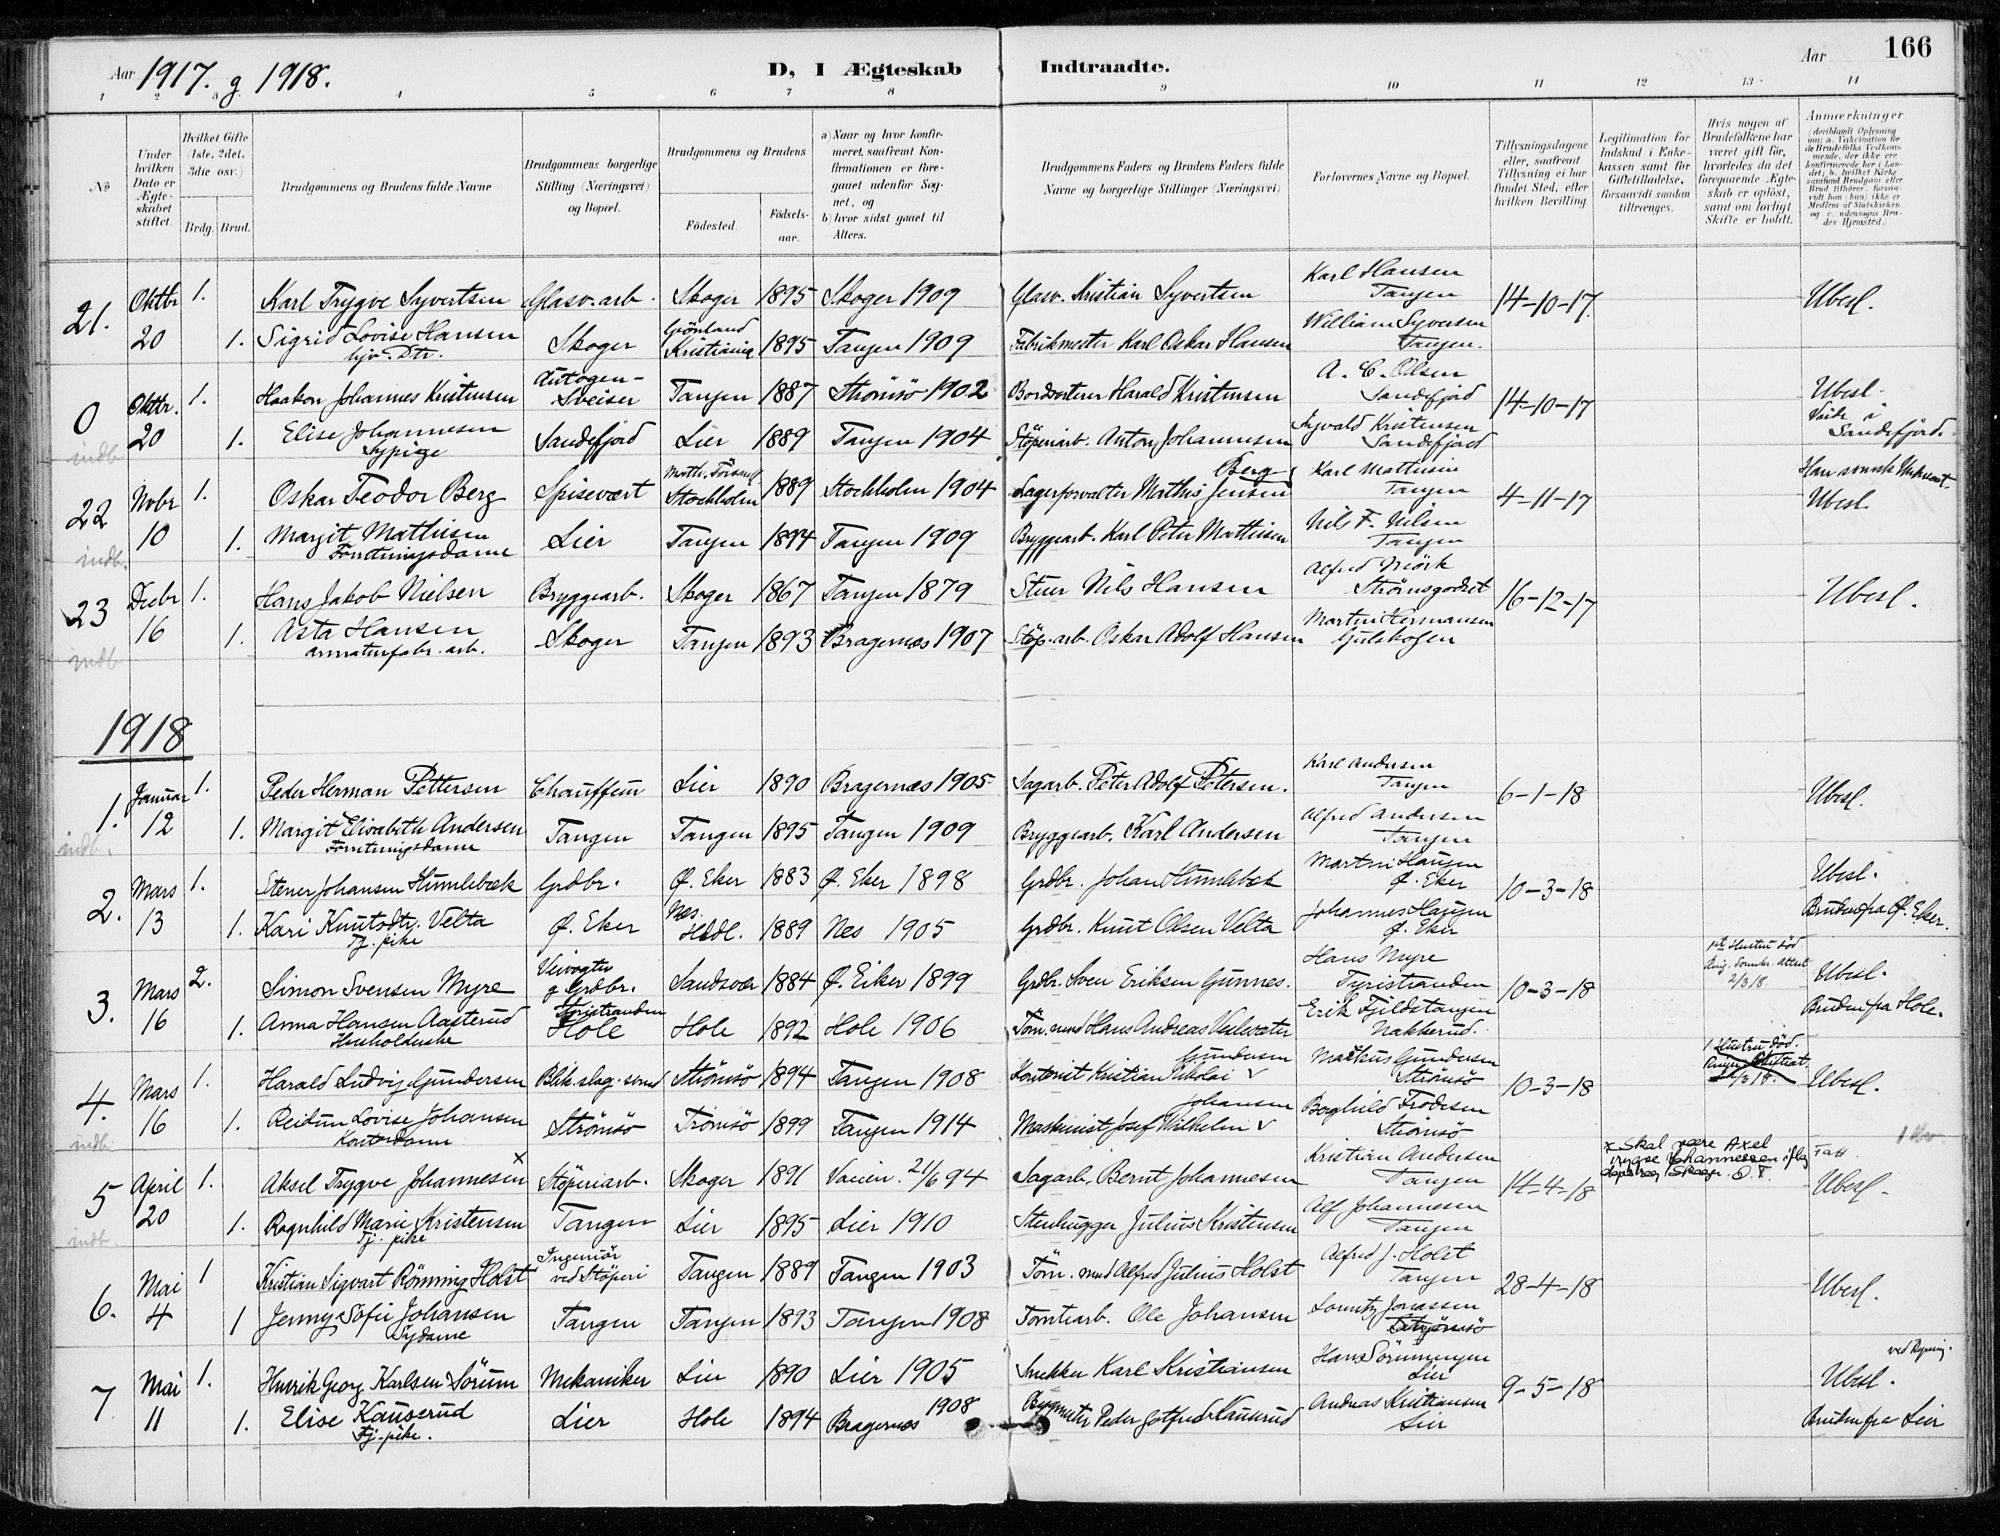 Aar 1917. g 1918.
D, I Ægteskab Indtraadte.
Aar 166
1 2 3 4 5 6 7 8 9 10 11 12 13 14
No
Under hvilken Dato er Ægteskabet stiftet.
Hvilket Gifte (1ste, 2det, 3die osv.)
Brdg. Brud.
Brudgommens og Brudens fulde Navne
Brudgommens borgerlige Stilling (Næringsvei) og Bopæl.
Brudgommens og Brudens
Födested.
Födselsaar.
a) Naar og hvor konfirmeret, saafremt Konfirmationen er foregaaet udenfor Sognet, og
b) hvor sidst gaaet til Alters.
Brudgommens Faders og Brudens Faders fulde Navne og borgerlige Stillinger (Næringsvei)
Forlovernes Navne og Bopæl.
Tillysningsdagene eller, saafremt Tillysning ei har fundet Sted, efter hvilken Bevilling
Legitimation for Indskud i Enkekassen samt for Giftetilladelse, forsaavidt saadan tiltrænges.
Hvis nogen af Brudefolkene har været gift för, hvorledes da det foregaaende Ægteskab er oplöst, samt om lovligt Skifte er holdt.
Anmærkninger
(deriblandt Oplysning om: a. Vakcination for de Brudefolks Vedkommende, der ikke ere konfirmerede her i Landet; b. hvilket Kirkesamfund Brudgom eller Brud tilhörer, forsaavidt han (hun) ikke er Medlem af Statskirken, og c. udensogns Brudes Hjemsted.)
21. Oktbr 1. Karl Trygve Syvertsen Glasv. arb. Skoger 1895 Skoger 1909 Glasv. Kristian Syvertsen Karl Hansen Tangen 14-10-17. Ubesl.
20 1. Sigrid Lovise Hansen Skoger Grönland Kristiania 1895 Tangen 1909 Fabrikmester Karl Oskar Hansen William Syversen Tangen.
hjv. Dtr.
0 Oktbr. 1. Haakon Johannes Kristensen Autogen-Sveiser Tangen 1887 Strömsö 1902 Bordsorterer Harald Kristensen A. C. Olsen Sandefjord 14-10-17 Ubesl.
indb. 20 1. Elise Johannesen Sandefjord Lier 1889 Tangen 1904 Stöperiarb. Anton Johannesen Sigvald Kristensen Sandefjord Viede i Sandefjord.
Sypige
22 Novbr 1. Oskar Teodor Berg Spisevært Stockholm 1889 Stockholm 1904 Lagerforvalter Mathis Jensen Berg Karl Mathisen Tangen 4-11-17 Han svensk Ubesl.
indb. 10 1. Margit Mathisen Lier Tangen 1894 Tangen 1909 Bryggearb. Karl Peter Mathisen Nils F. Nilsen Tangen
Forretningsdame
23 Decbr 1. Hans Jakob Nielsen Bryggearb. Skoger 1867 Tangen 1879 Stuer Nils Hansen Alfred Mörk Strömsgodset 16-12-17 Ubesl.
indb 16 1. Asta Hansen Skoger Tangen 1893 Bragernæs 1907 Stöp. arb. Oskar Adolf Hansen Martin Hermansen Gulskogen
armaturfabr. arb.
1918
1. Januar 1. Peder Herman Pettersen Chauffeur Lier 1890 Bragernæs 1905 Sagarb. Peter Adolf Petersen. Karl Andersen Tangen 6-1-18 Ubesl.
indb. 12 1. Margit Elisabeth Andersen Tangen Tangen 1895 Tangen 1909 Bryggearb. Karl Andersen Alfred Andersen Tangen
Forretningsdame
2. Mars 1. Stener Johansen Humlebæk Grdbr. Ø. Eker 1883 Ø. Eker 1898 Grdbr. Johan Humlebæk Martin Haugen Ø. Eker 10-3-18 Ubesl.
13 1. Kari Knutsdtr. Velta Ø. Eker Nes. Hedl. 1889 Nes 1905 Grdbr. Knut Olsen Velta Johannes Haugen Ø. Eker Bruden fra Ø. Eker.
Tj. pike
3. Mars 2. Simon Svensen Myre Veivogter g Grdbr. Sandsvær 1884 Ø. Eiker 1899 Grdbr. Sven Eriksen Gunnes. Hans Myre Tyristranden 10-3-18 1ste Hustru död Ang. Attest 2/3 18. Ubesl.
16 1. Anna Hansen Aasterud Tyristranden Hole Hole 1892 Hole 1906 Töm.mand Hans Andreas Erik Fjeldstangen Nakkerud. Bruden fra Hole.
Husholderske
4. Mars 1. Harald Ludvig Gundersen Blik.slag. svend Strömsö 1894 Tangen 1908 Kontorist Kristian Nikolai Gundersen Markus Gundersen Strömsö 10-3-18 1 Hustru död. Ubesl.
indb. 16 1. Reidun Lovise Johansen Strömsö Tromsö 1899 Tangen 1914 Maskinist Josef Wilhelm Johansen Borghild Frodesen Strömsö
Kontordame
5 April 1. Aksel Trygve Johannesen x Stöperiarb. Skoger 1891 Vaccin. 21/6 94 Sagarb. Bernt Johannesen Kristian Andersen Tangen 14-4-18 x Skal være Axel Trygve Johannessen iflg. dapsreg. Skoger S. T. Fatt. Ubesl.
indb. 20 1. Ragnhild Marie Kristensen Tangen Lier 1895 Lier 1910 Stenhugger Julius Kristensen Alf Johannesen Tangen
Tj. pike
6. Mai 1 Kristian Sigvart Rönning Holst Ingeniör ved Stöperi Tangen 1889 Tangen 1903 Töm. mand Alfred Julius Holst Alfred J. Holst Tangen 28-4-18 Ubesl.
4 1 Jenny Sofie Johansen Tangen Tangen 1893 Tangen 1908 Tomtearb. Ole Johansen Lorentz Jonassen
Sydame
7 Mai 1. Henrik Georg Karlsen Sörum Mekaniker Lier 1890 Lier 1905 Snekker Karl Kristiansen Hans Lier 9-5-18 Ubesl.
11 1. Elise Kauserud Lier Hole 1894 Bragernæs 1908 Bygmester Peder Gotfred Kauserud Andreas Kristiansen Lier Bruden fra Lier
Tj. pike.